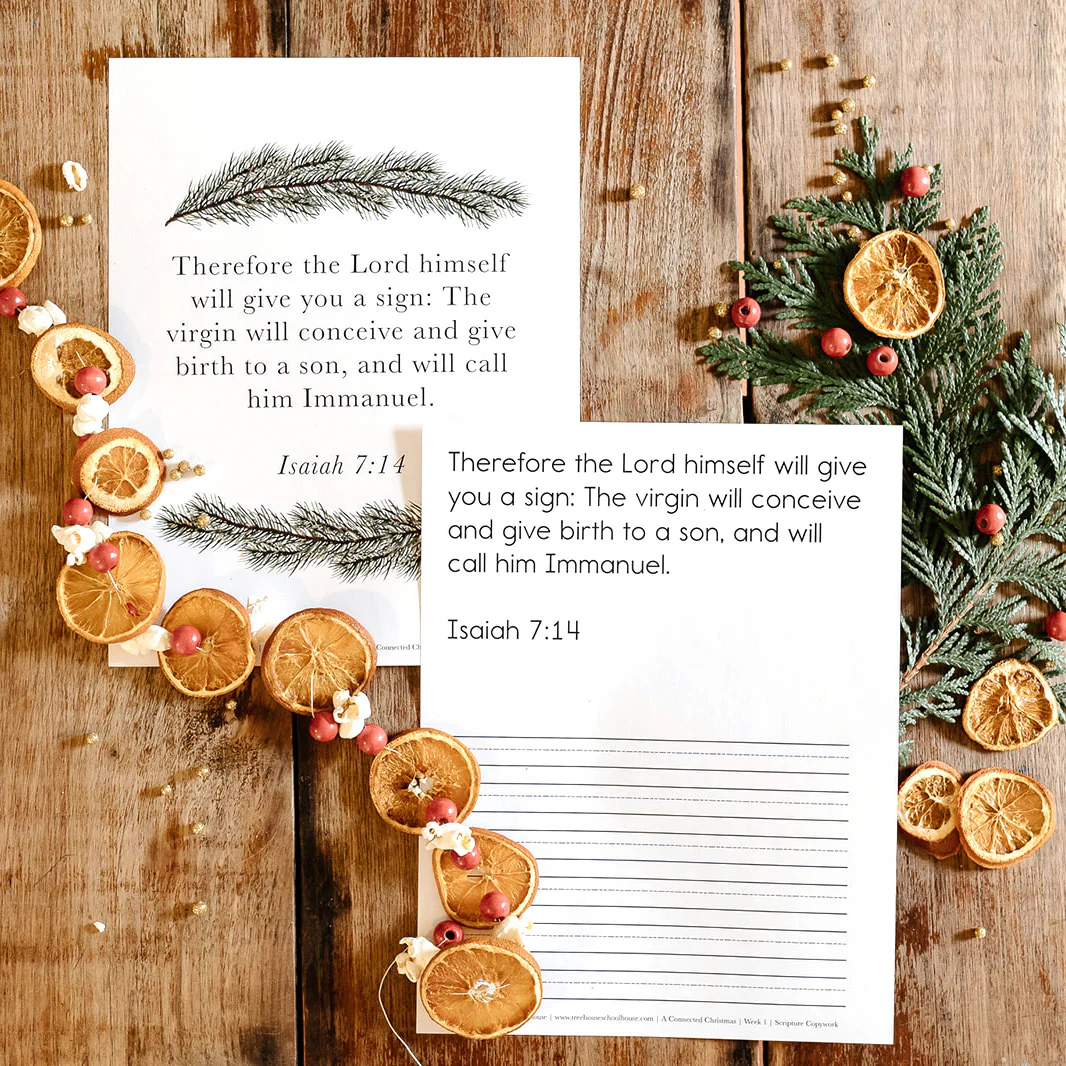 Therefore the Lord himself
will give you a sign: The
virgin will conceive and give
birth to a son, and will call
him Immanuel.
Isaiah 7:14
Connected
Therefore the Lord himself will give
you a sign: The virgin will conceive
and give birth to a son, and will
call him Immanuel.
Isaiah 7:14
| www.treehouseschoolhouse.com | A Connected Christmas | Week 1 | Scripture Copywork